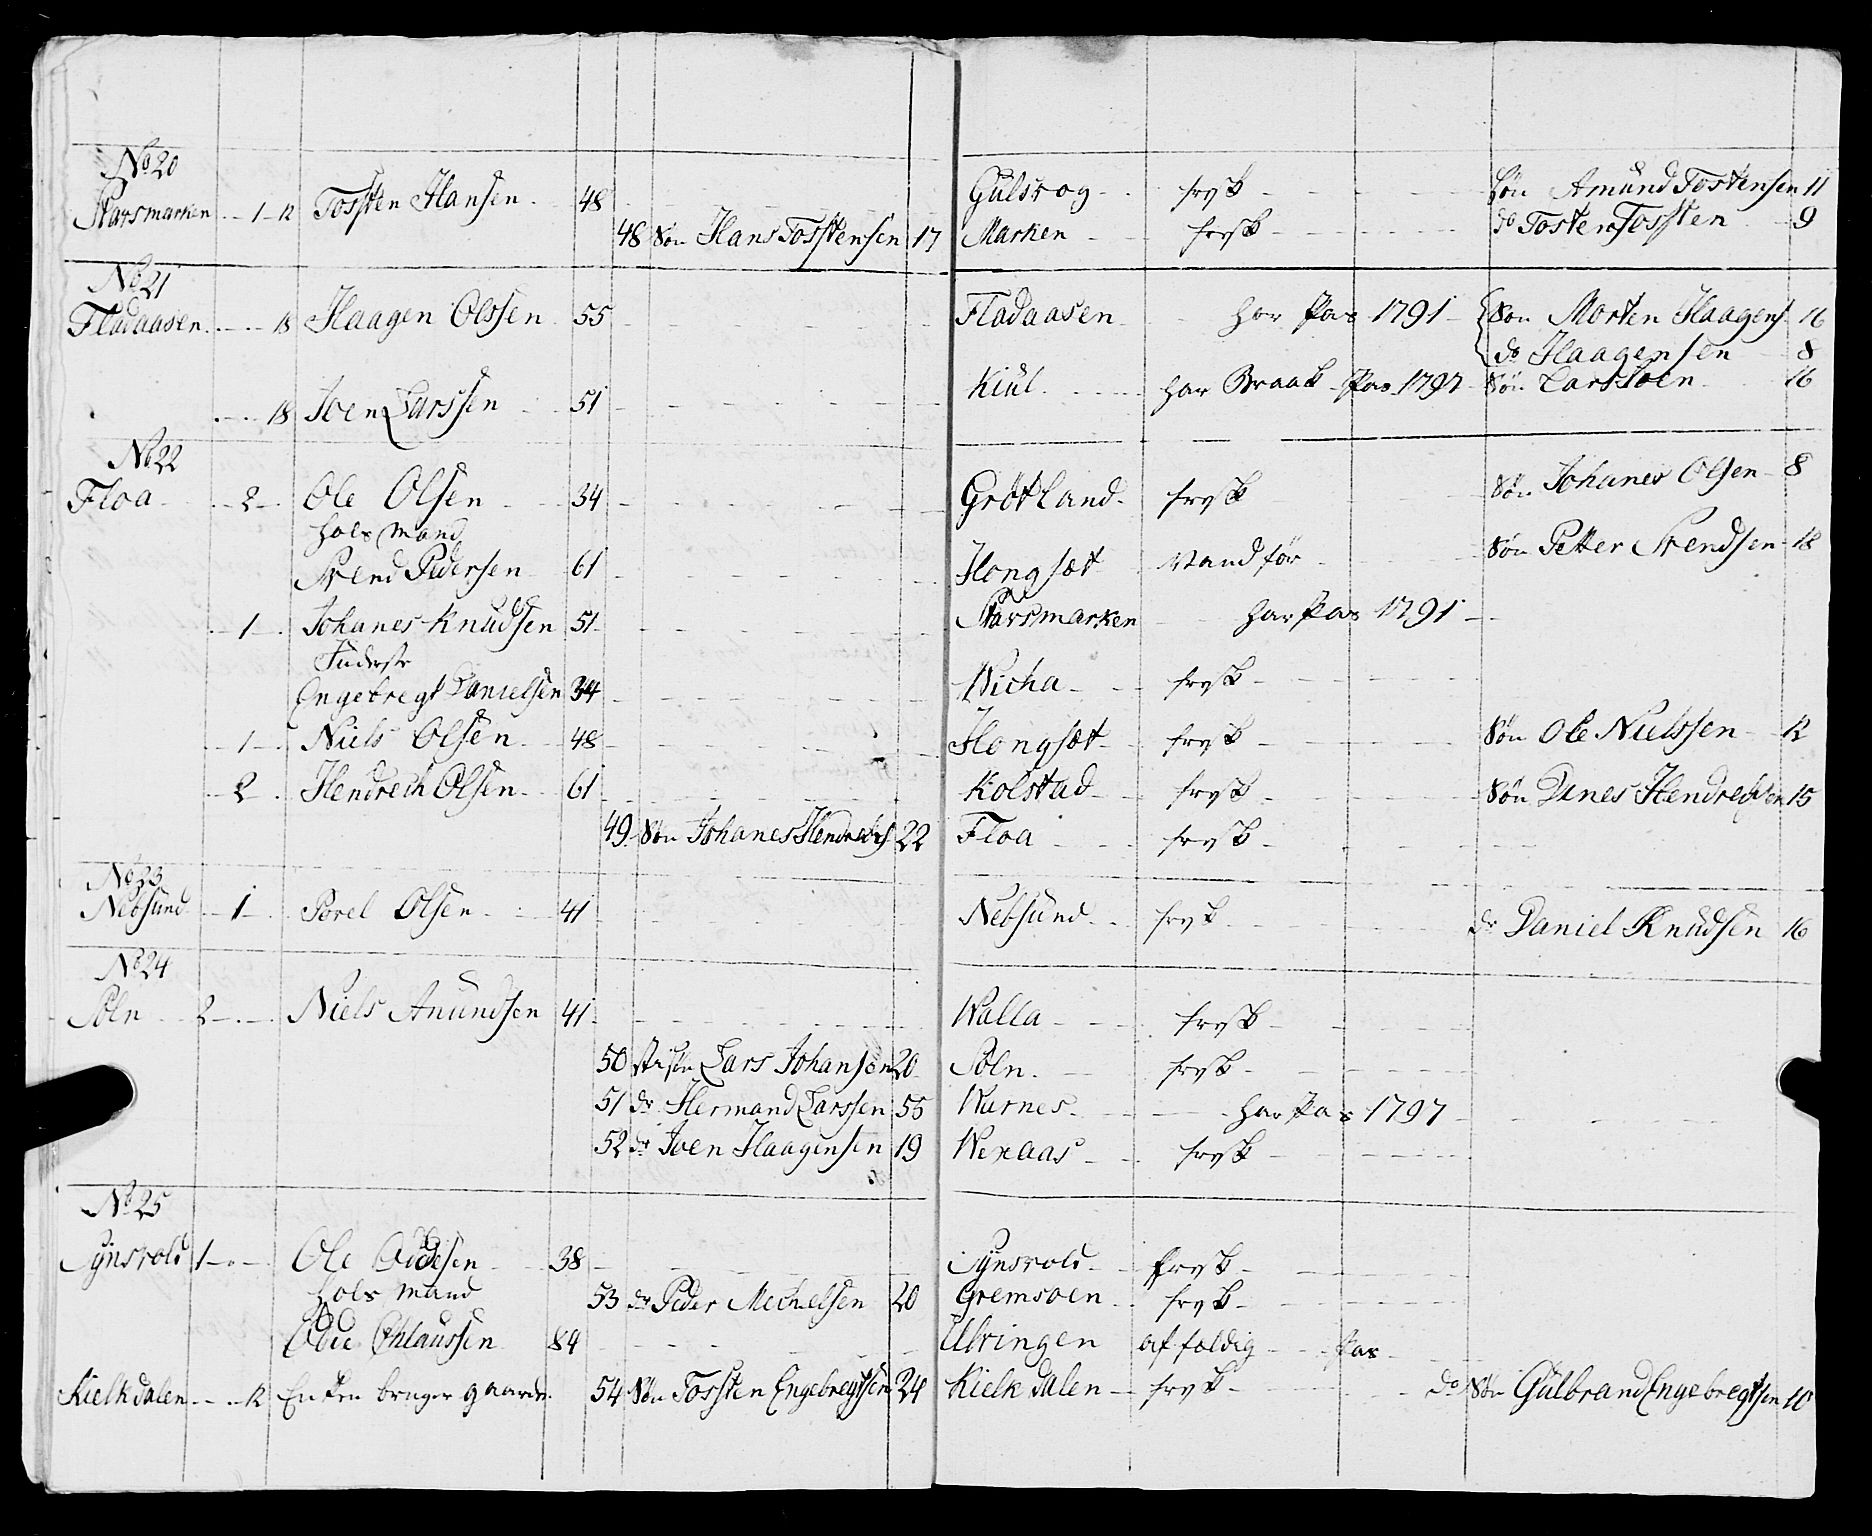 No 20
Starsmarken 1 12 Tossten Hansen 48 Gulsvog frysk Søn Amund Tostensen 11
48 Søn Hans Tosstensen 17 Marken frysk do Tosten Tossten 9
No 21
Fladaasen 18 Haagen Olssen 55 Fladaasen har Pas 1791 Søn Morten Haagens 16
do Haagensen 8
18 Joen Larssen 51 Kiul har Braak Pas 1797 Søn Lars Joen 16
No 22
Floa 2 Ole Olsen 34 Grøtland frysk Søn Johanes Olsen 8
Hols Mand
Svend Pedersen 61 Hongsæt Vandfør Søn Petter Svendsen 18
1 Johanes Knudsen 51 Starsmarken har Pas 1791
Inderste
Engebregt Danielsen 34 Wicha frysk
1 Niels Olsen 48 Hongsæt frysk Søn Ole Nielssen 12
2 Hendrech Olsen 61 Kolstad frysk Søn Dines Hendrechsen 15
49 Søn Johanes Hendrechs 22 Floa frysk
No 23
Nebsund 1 Porel Olsen 41 Nebsund frysk do Daniel Knudsen 16
No 24
Poln 2 Niels Amundsen 41 Walla frysk
50 Stisøn Lars Johansen 20 Poln frysk
51 do Hermand Larssen 55 Wurnes har Pas 1797
52 do Joen Haagensen 19 Wexaas frysk
No 25
Synsvold 1 Ole Oddesen 38 Synsvold frysk
Hols Mand 53 do Peder Mechelsen 20 Gremsoen frysk
Odde Chlaussen 84 Ulvringen affældig Pas
Kielkdalen 12 Enken bruger gaarden 54 Søn Tossten Engebregtsen 24 Kielkdalen frysk do Søn Gulbrand Engebregtsen 10